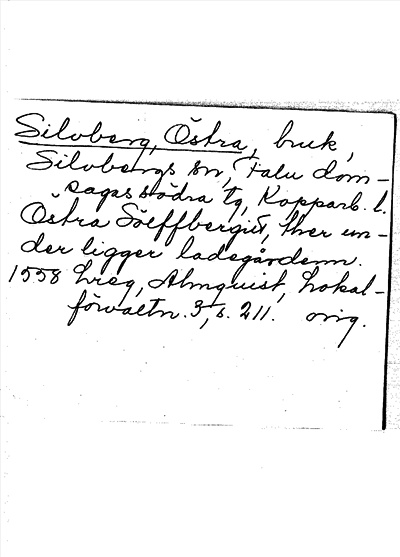 Silvberg, Östra, bruk,
Silvbergs sn, Falu dom-
sagas södra tg, Kopparb. l.
Östra Sölffbergit, ther un-
der ligger ladegårdenn.
1558 Lreg, Almquist, Lokal-
förvaltn. 3, s. 211. orig.